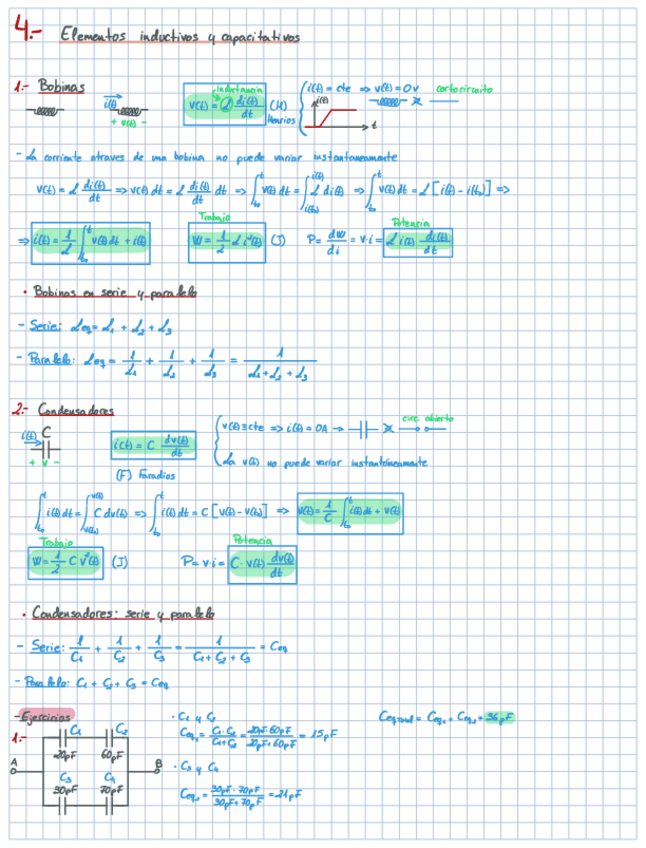 4.- Elementos inductivos y capacitativos
1.- Bobinas
i(t)
+ v(t) -
Inductancia
v(t) = L di(t)/dt (H) Henrios
i(t) = cte ⇒ v(t) = 0v cortocircuito
i(t)
t
- La corriente a traves de una bobina no puede variar instantaneamente
v(t) = L di(t)/dt ⇒ v(t) dt = L di(t)/dt dt ⇒ ∫_{t₀}^{t} v(t) dt = ∫_{i(t₀)}^{i(t)} L di(t) ⇒ ∫_{t₀}^{t} v(t) dt = L [i(t) - i(t₀)] ⇒
⇒ i(t) = 1/L ∫_{t₀}^{t} v(t) dt + i(t)
Trabajo
W = 1/2 L i²(t) (J)
Potencia
P = dW/di = v·i = L i(t) di(t)/dt
· Bobinas en serie y paralelo
- Serie: Leq = L₁ + L₂ + L₃
- Paralelo: Leq = 1/L₁ + 1/L₂ + 1/L₃ = 1/(L₁ + L₂ + L₃)
2.- Condensadores
i(t) C
+ v -
i(t) = C dv(t)/dt
(F) Faradios
v(t) = cte ⇒ i(t) = 0A → circ. abierto
La v(t) no puede variar instantáneamente
∫_{t₀}^{t} i(t) dt = ∫_{v(t₀)}^{v(t)} C dv(t) ⇒ ∫_{t₀}^{t} i(t) dt = C [v(t) - v(t₀)] ⇒ v(t) = 1/C ∫_{t₀}^{t} i(t) dt + v(t)
Trabajo
W = 1/2 C v²(t) (J)
Potencia
P = v·i = C · v(t) dv(t)/dt
· Condensadores: serie y paralelo
- Serie: 1/C₁ + 1/C₂ + 1/C₃ = 1/(C₁ + C₂ + C₃) = Ceq
- Paralelo: C₁ + C₂ + C₃ = Ceq
- Ejercicios
1.-
C₁ C₂
20pF 60pF
A B
C₃ C₄
30pF 70pF
· C₁ y C₂
Ceq₁ = C₁·C₂/(C₁+C₂) = 20pF·60pF/(20pF+60pF) = 15pF
· C₃ y C₄
Ceq₂ = 30pF·70pF/(30pF+70pF) = 21pF
Ceq total = Ceq₁ + Ceq₂ = 36pF